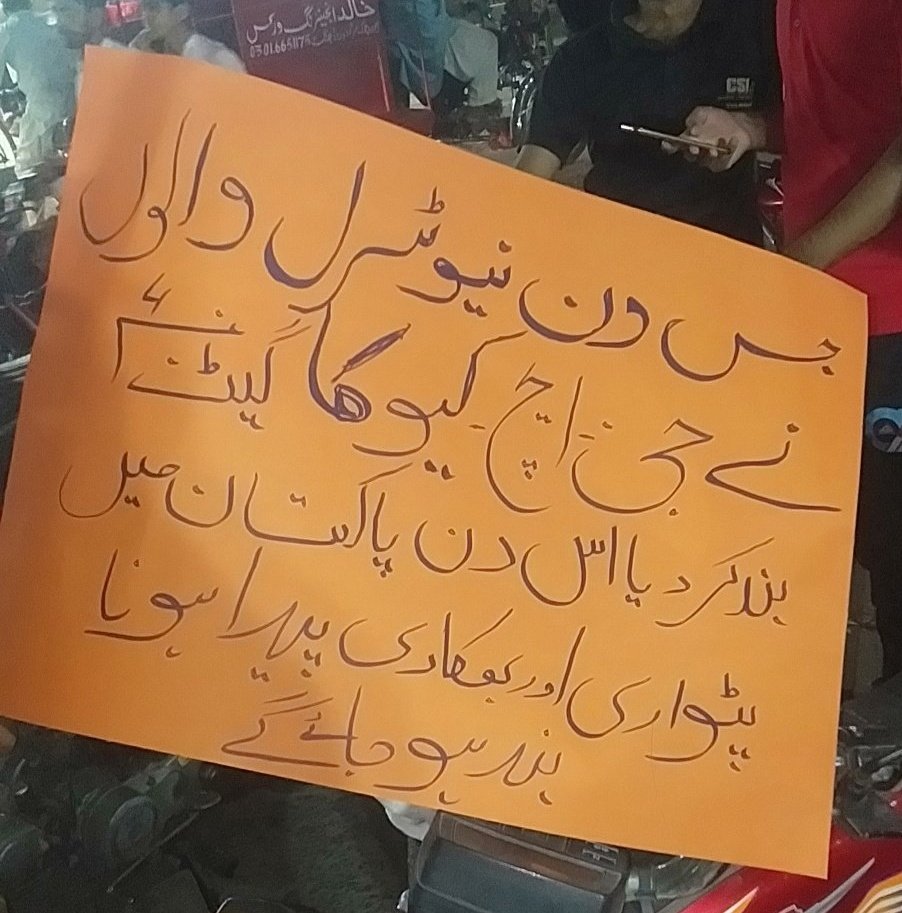 خالد انجینئرنگ ورکس
0301.6651175
CSI
جس دن نیوٹرل والوں
نے جی ایچ کیو کا گیٹ نے
بند کر دیا اس دن پاکستان میں
پٹواری اور بھکاری پیدا ہونا
بند ہو جائے گے